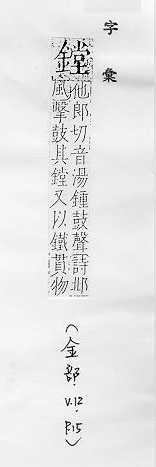 字彙
鏜
他郎切音湯鍾鼓聲詩邶
風擊鼓其鏜又以鐵貫物
(金部.
V.12.
P.15)